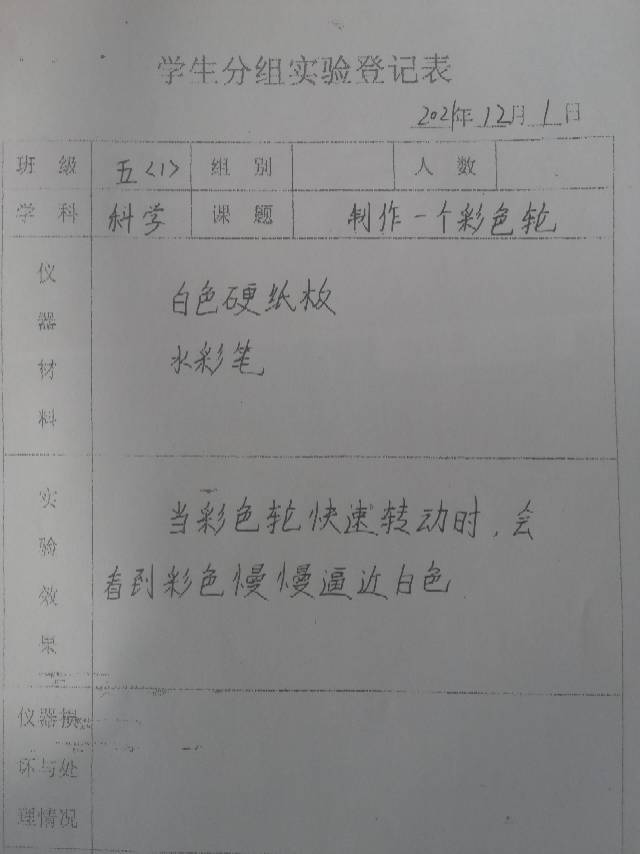 学生分组实验登记表
2021年12月1日
班级 五<1> 组别 人数
学科 科学 课题 制作一个彩色轮
仪器材料
白色硬纸板
水彩笔
实验效果
当彩色轮快速转动时，会
看到彩色慢慢逼近白色
仪器损
坏与处
理情况